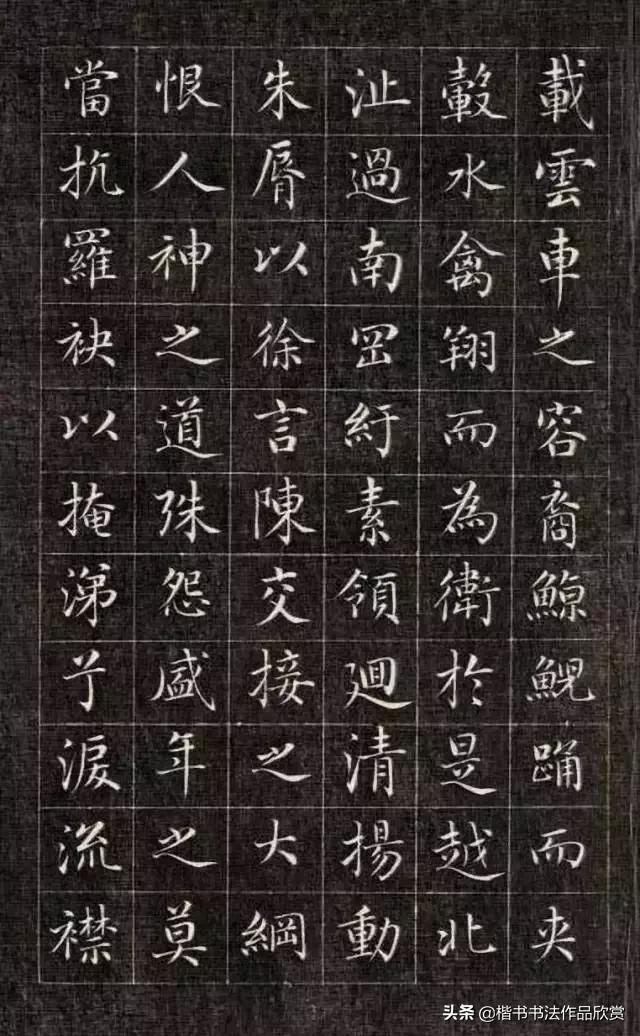 載雲車之容裔鯨鯢踊而夾
轂水禽翔而為衛於是越北
沚過南罡紆素領廻清揚動
朱脣以徐言陳交接之大綱
恨人神之道殊怨盛年之莫
當抗羅袂以掩涕兮淚流襟
头条@楷书书法作品欣赏